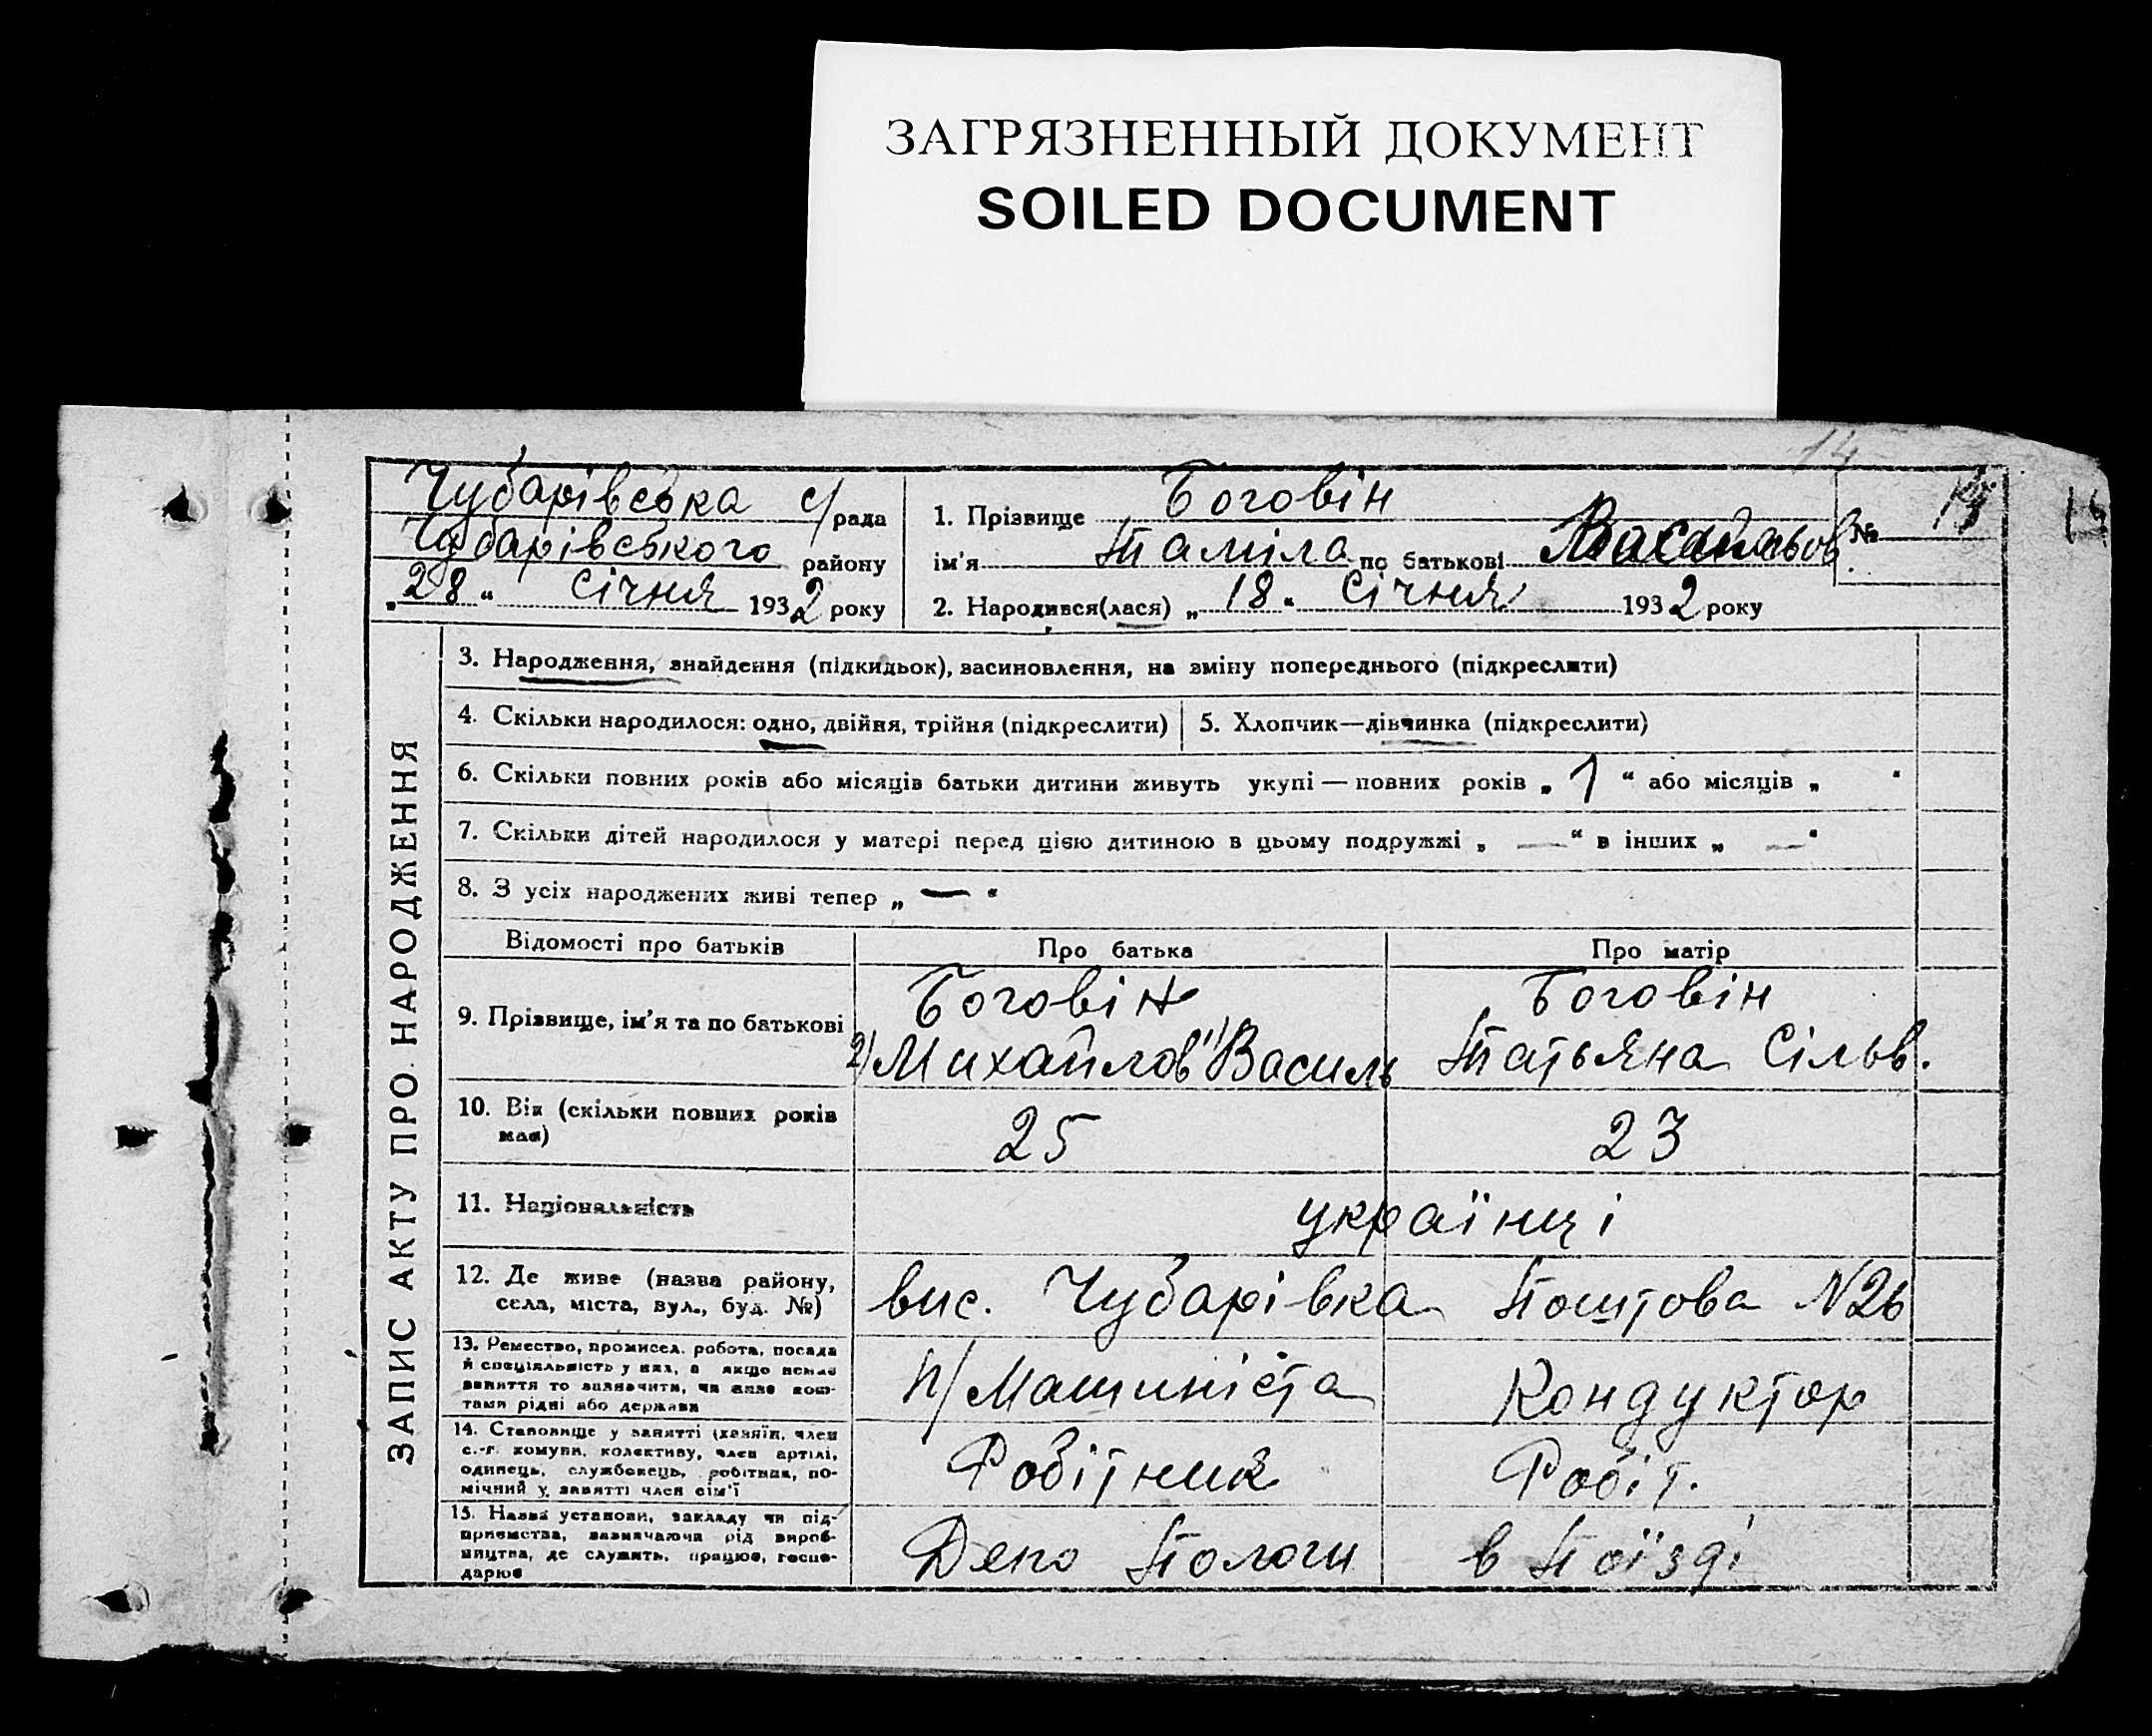 ЗАГРЯЗНЕННЫЙ ДОКУМЕНТ
SOILED DOCUMENT
14
Чубарівська с/рада
Чубарівського району
„28“ Січня 1932 року
1. Прізвище Боговін
ім'я Таміла по батькові
№
2. Народився(лася) „18“ Січня 1932 року
ЗАПИС АКТУ ПРО НАРОДЖЕННЯ
3. Народження, знайдення (підкидьок), засиновлення, на зміну попереднього (підкреслити)
4. Скільки народилося: одно, двійня, трійня (підкреслити)
5. Хлопчик—дівчинка (підкреслити)
6. Скільки повних років або місяців батьки дитини живуть укупі — повних років „1“ або місяців „ “
7. Скільки дітей народилося у матері перед цією дитиною в цьому подружжі „—“ в інших „—“
8. З усіх народжених живі тепер „—“
Відомості про батьків Про батька Про матір
9. Прізвище, ім'я та по батькові
Боговін
2) Михайлов 1) Василь
Боговін
Татьяна Сільв.
10. Вік (скільки повних років має)
25 23
11. Національність
українці
12. Де живе (назва району,
села, міста, вул., буд. №)
вис. Чубарівка Поштова N26
13. Ремество, промисел, робота, посада
й спеціяльність у них, а якщо немає
заняття то зазначити, чи живе кош-
тами рідні або держави
п/Машиніста Кондуктор
14. Становище у занятті (хазяїн, член
с.-г. комуни, колективу, член артілі,
одинець, службовець, робітник, по-
мічний у занятті член сім'ї
Робітник Робіт.
15. Назва установи, закладу чи під-
приємства, зазначаючи рід вироб-
ництва, де служить, працює, госпо-
дарює
Депо Пологи в Поїзді